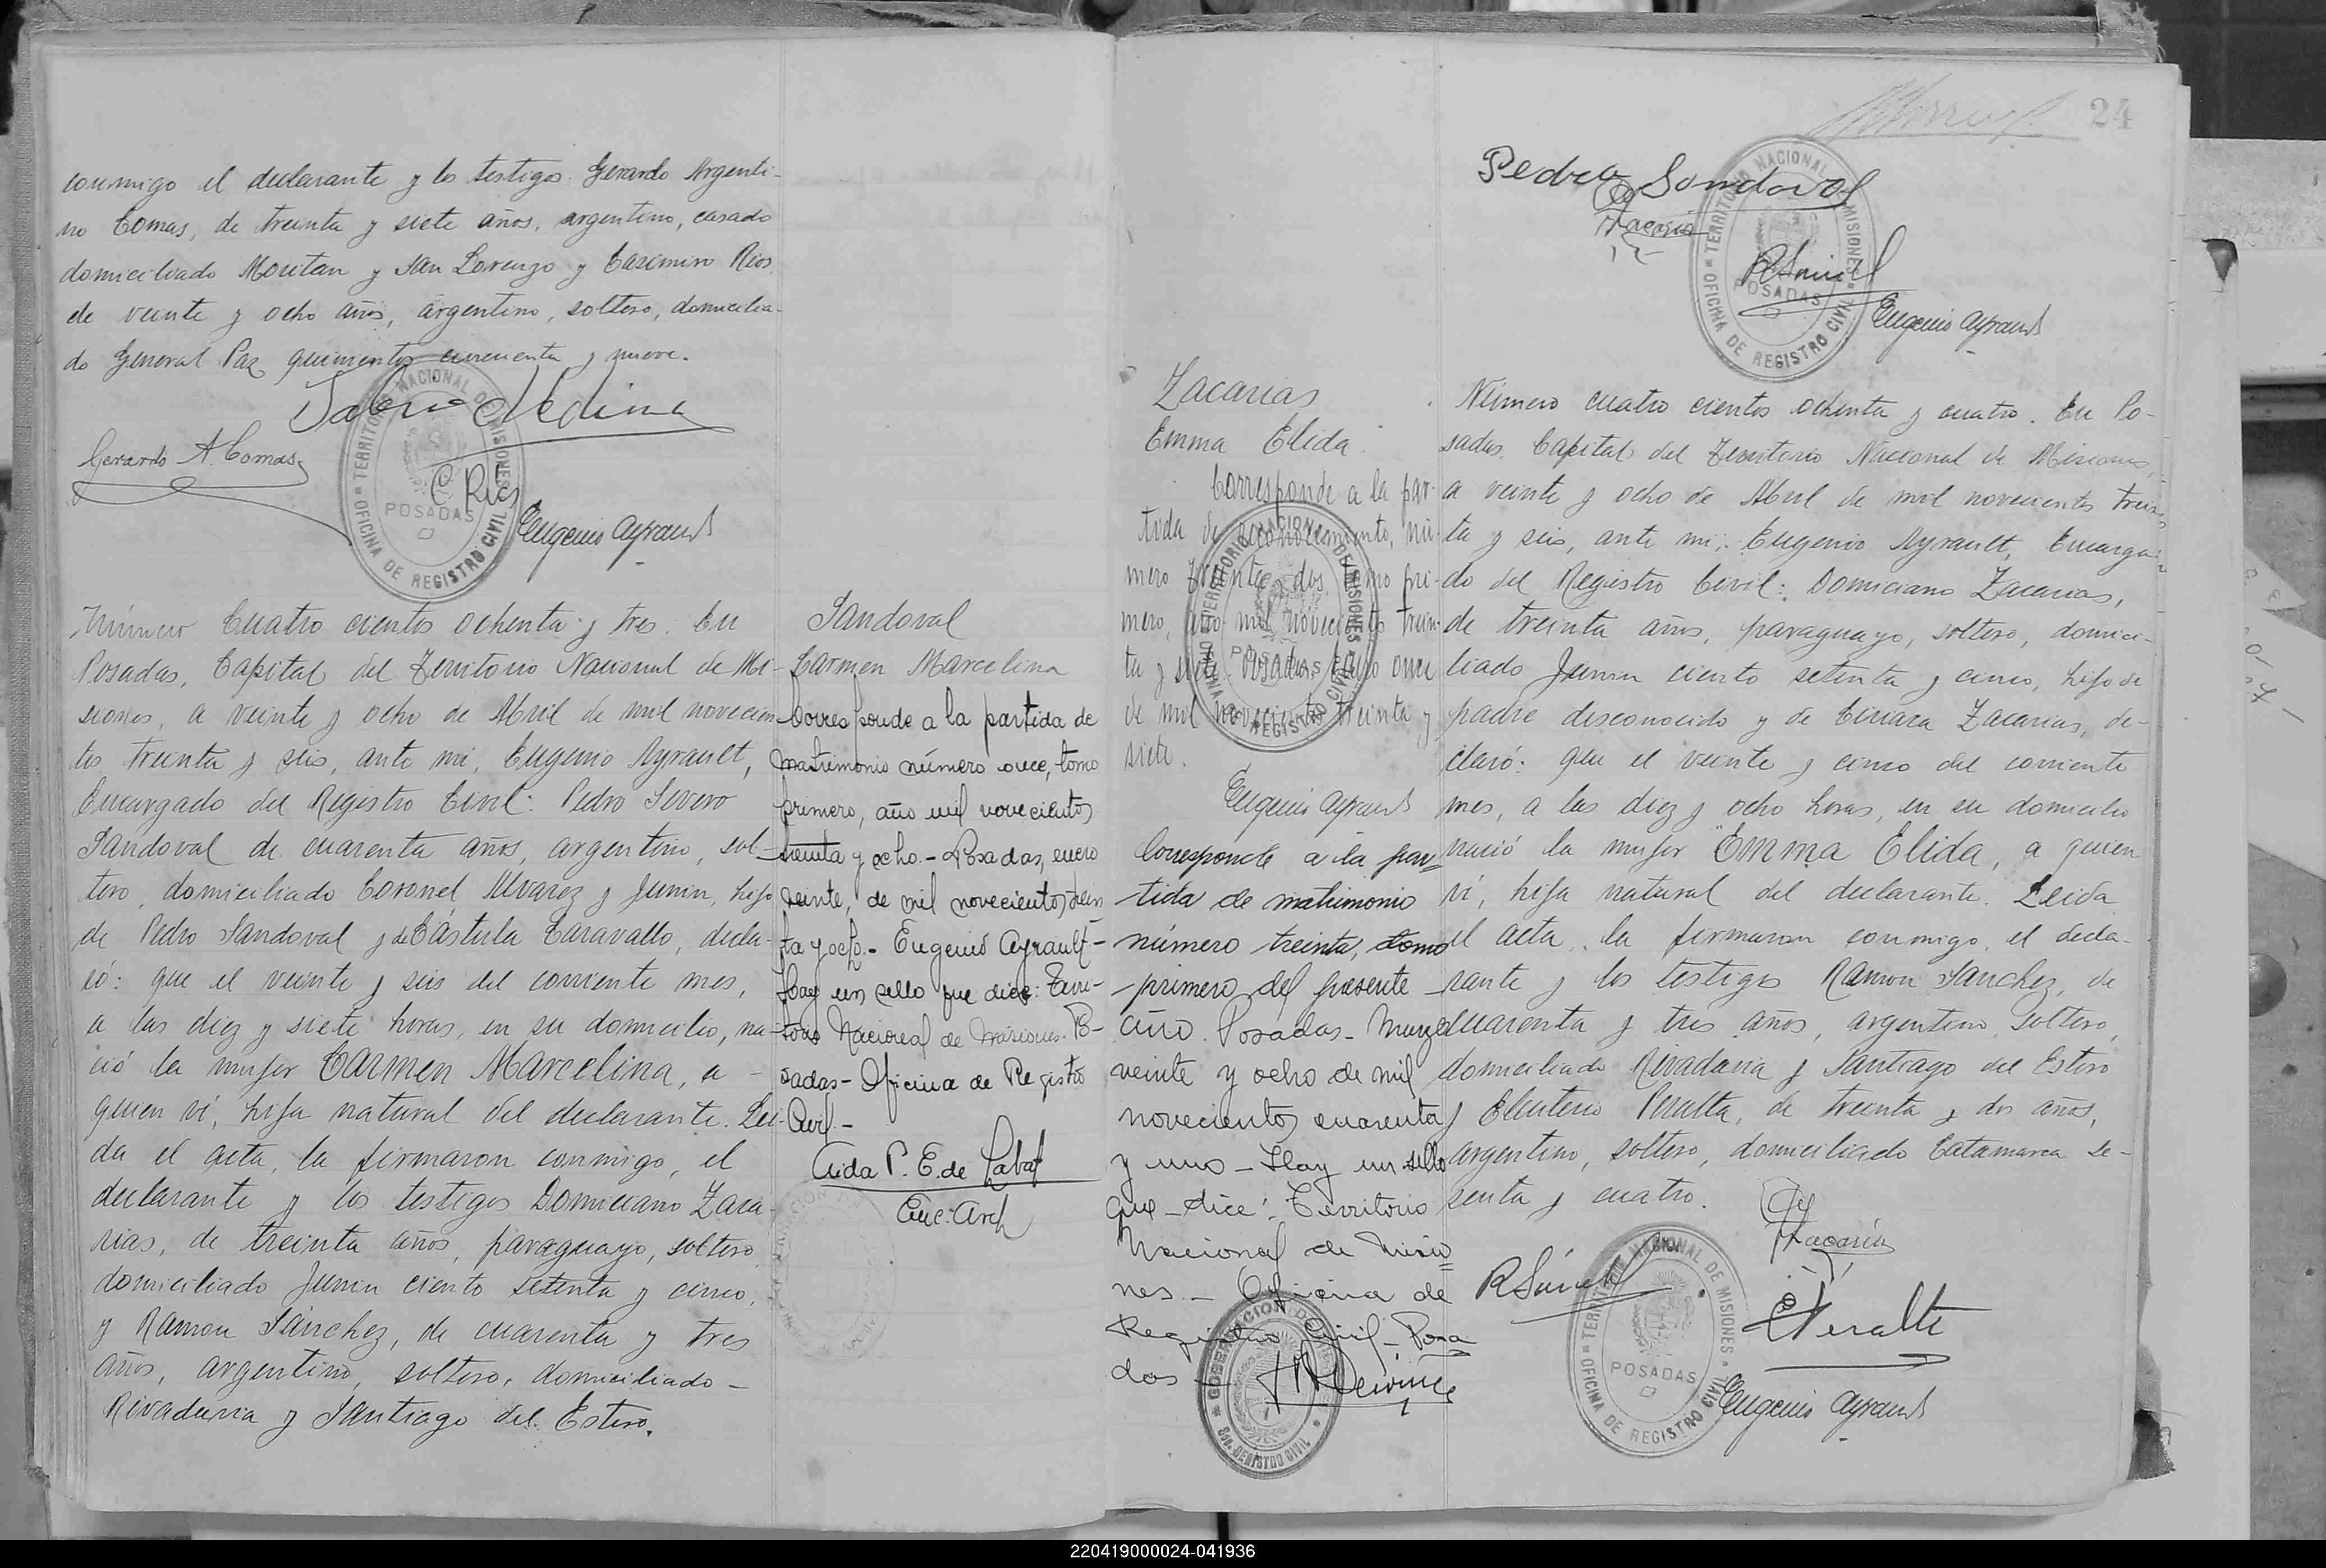 conmigo el declarante y los testigos Gerardo Argenti-
no Comas, de treinta y siete años, argentino, casado
domiciliado Moritan y San Lorenzo y Casimiro Rios
de veinte y ocho años, argentino, soltero, domicilia-
do General Paz quinientos cincuenta y nueve.
Medina
Gerardo A. Comas
C Rios
Eugenio Ayrault
TERRITORIO NACIONAL DE MISIONES
POSADAS
OFICINA DE REGISTRO CIVIL
Número Cuatro cientos ochenta y tres. En
Posadas, Capital del Territorio Nacional de Mi-
siones, a veinte y ocho de Abril de mil novecien
tos treinta y seis, ante mi, Eugenio Ayrault,
Encargado del Registro Civil: Pedro Severo
Sandoval de cuarenta años, argentino, sol-
tero, domiciliado Coronel Alvarez y Junin, hijo
de Pedro Sandoval y de Cástula Caravallo, decla-
ró: que el veinte y seis del corriente mes,
a las diez y siete horas, en su domicilio, na-
ció la mujer Carmen Marcelina, a -
quien ví, hija natural del declarante. Lei-
da el acta, la firmaron conmigo, el
declarante y los testigos Domiciano Zaca-
rias, de treinta años, paraguayo, soltero
domiciliado Junin ciento setenta y cinco,
y Ramon Sánchez, de cuarenta y tres
años, argentino, soltero, domiciliado -
Rivadavia y Santiago del Estero.
Sandoval
Carmen Marcelina
Corresponde a la partida de
matrimonio número once, tomo
primero, año mil novecientos
treinta y ocho.- Posadas, enero
veinte, de mil novecientos trein
ta y ocho.- Eugenio Ayrault-
Hay un sello que dice: Terri-
torio Nacional de Misiones. Po-
sadas- Oficina de Registro
Civil.-
Aida P. E. de Labat
Enc. Arch
24
Pedro Sandoval
Zacarías
RSánchez
Eugenio Ayrault
TERRITORIO NACIONAL DE MISIONES
POSADAS
OFICINA DE REGISTRO CIVIL
Zacarias
Emma Elida
Corresponde a la par-
tida de reconocimiento, nú-
mero treinta y dos, tomo pri-
mero, año mil novecientos trein-
ta y siete. Posadas, once
de mil novecientos treinta y
siete.
Eugenio Ayrault
TERRITORIO NACIONAL DE MISIONES
POSADAS
OFICINA DE REGISTRO CIVIL
Corresponde a la par-
tida de matrimonio
número treinta, tomo
primero del presente
año. Posadas- Marzo
veinte y ocho de mil
novecientos cuarenta
y uno - Hay un sello
que dice: Territorio
Nacional de Misio
nes - Oficina de
Registro Civil - Posa
das -
GOBERNACION DE
REGISTRO CIVIL
Número cuatro cientos ochenta y cuatro. En Po-
sadas, Capital del Territorio Nacional de Misiones,
a veinte y ocho de Abril de mil novecientos trein
ta y seis, ante mi, Eugenio Ayrault, Encarga-
do del Registro Civil: Domiciano Zacarias,
de treinta años, paraguayo, soltero, domici-
liado Junin ciento setenta y cinco, hijo de
padre desconocido y de Ciriaca Zacarias, de-
claró: que el veinte y cinco del corriente
mes, a las diez y ocho horas, en su domicilio
nació la mujer Emma Elida, a quien
ví, hija natural del declarante. Leida
el acta, la firmaron conmigo, el decla-
rante y los testigos Ramon Sánchez, de
cuarenta y tres años, argentino, soltero,
domiciliado Rivadavia y Santiago del Estero
y Eleuterio Peralta, de treinta y dos años,
argentino, soltero, domiciliado Catamarca se-
senta y cuatro.
Zacarías
RSánchez
EPeralta
Eugenio Ayrault
TERRITORIO NACIONAL DE MISIONES
POSADAS
OFICINA DE REGISTRO CIVIL
220419000024-041936